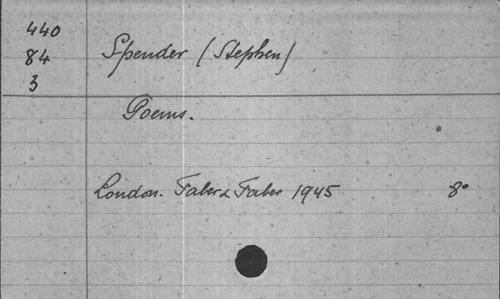 440
84
3
Spender (Stephen)
Poems.
London. Faber & Faber 1945 8°